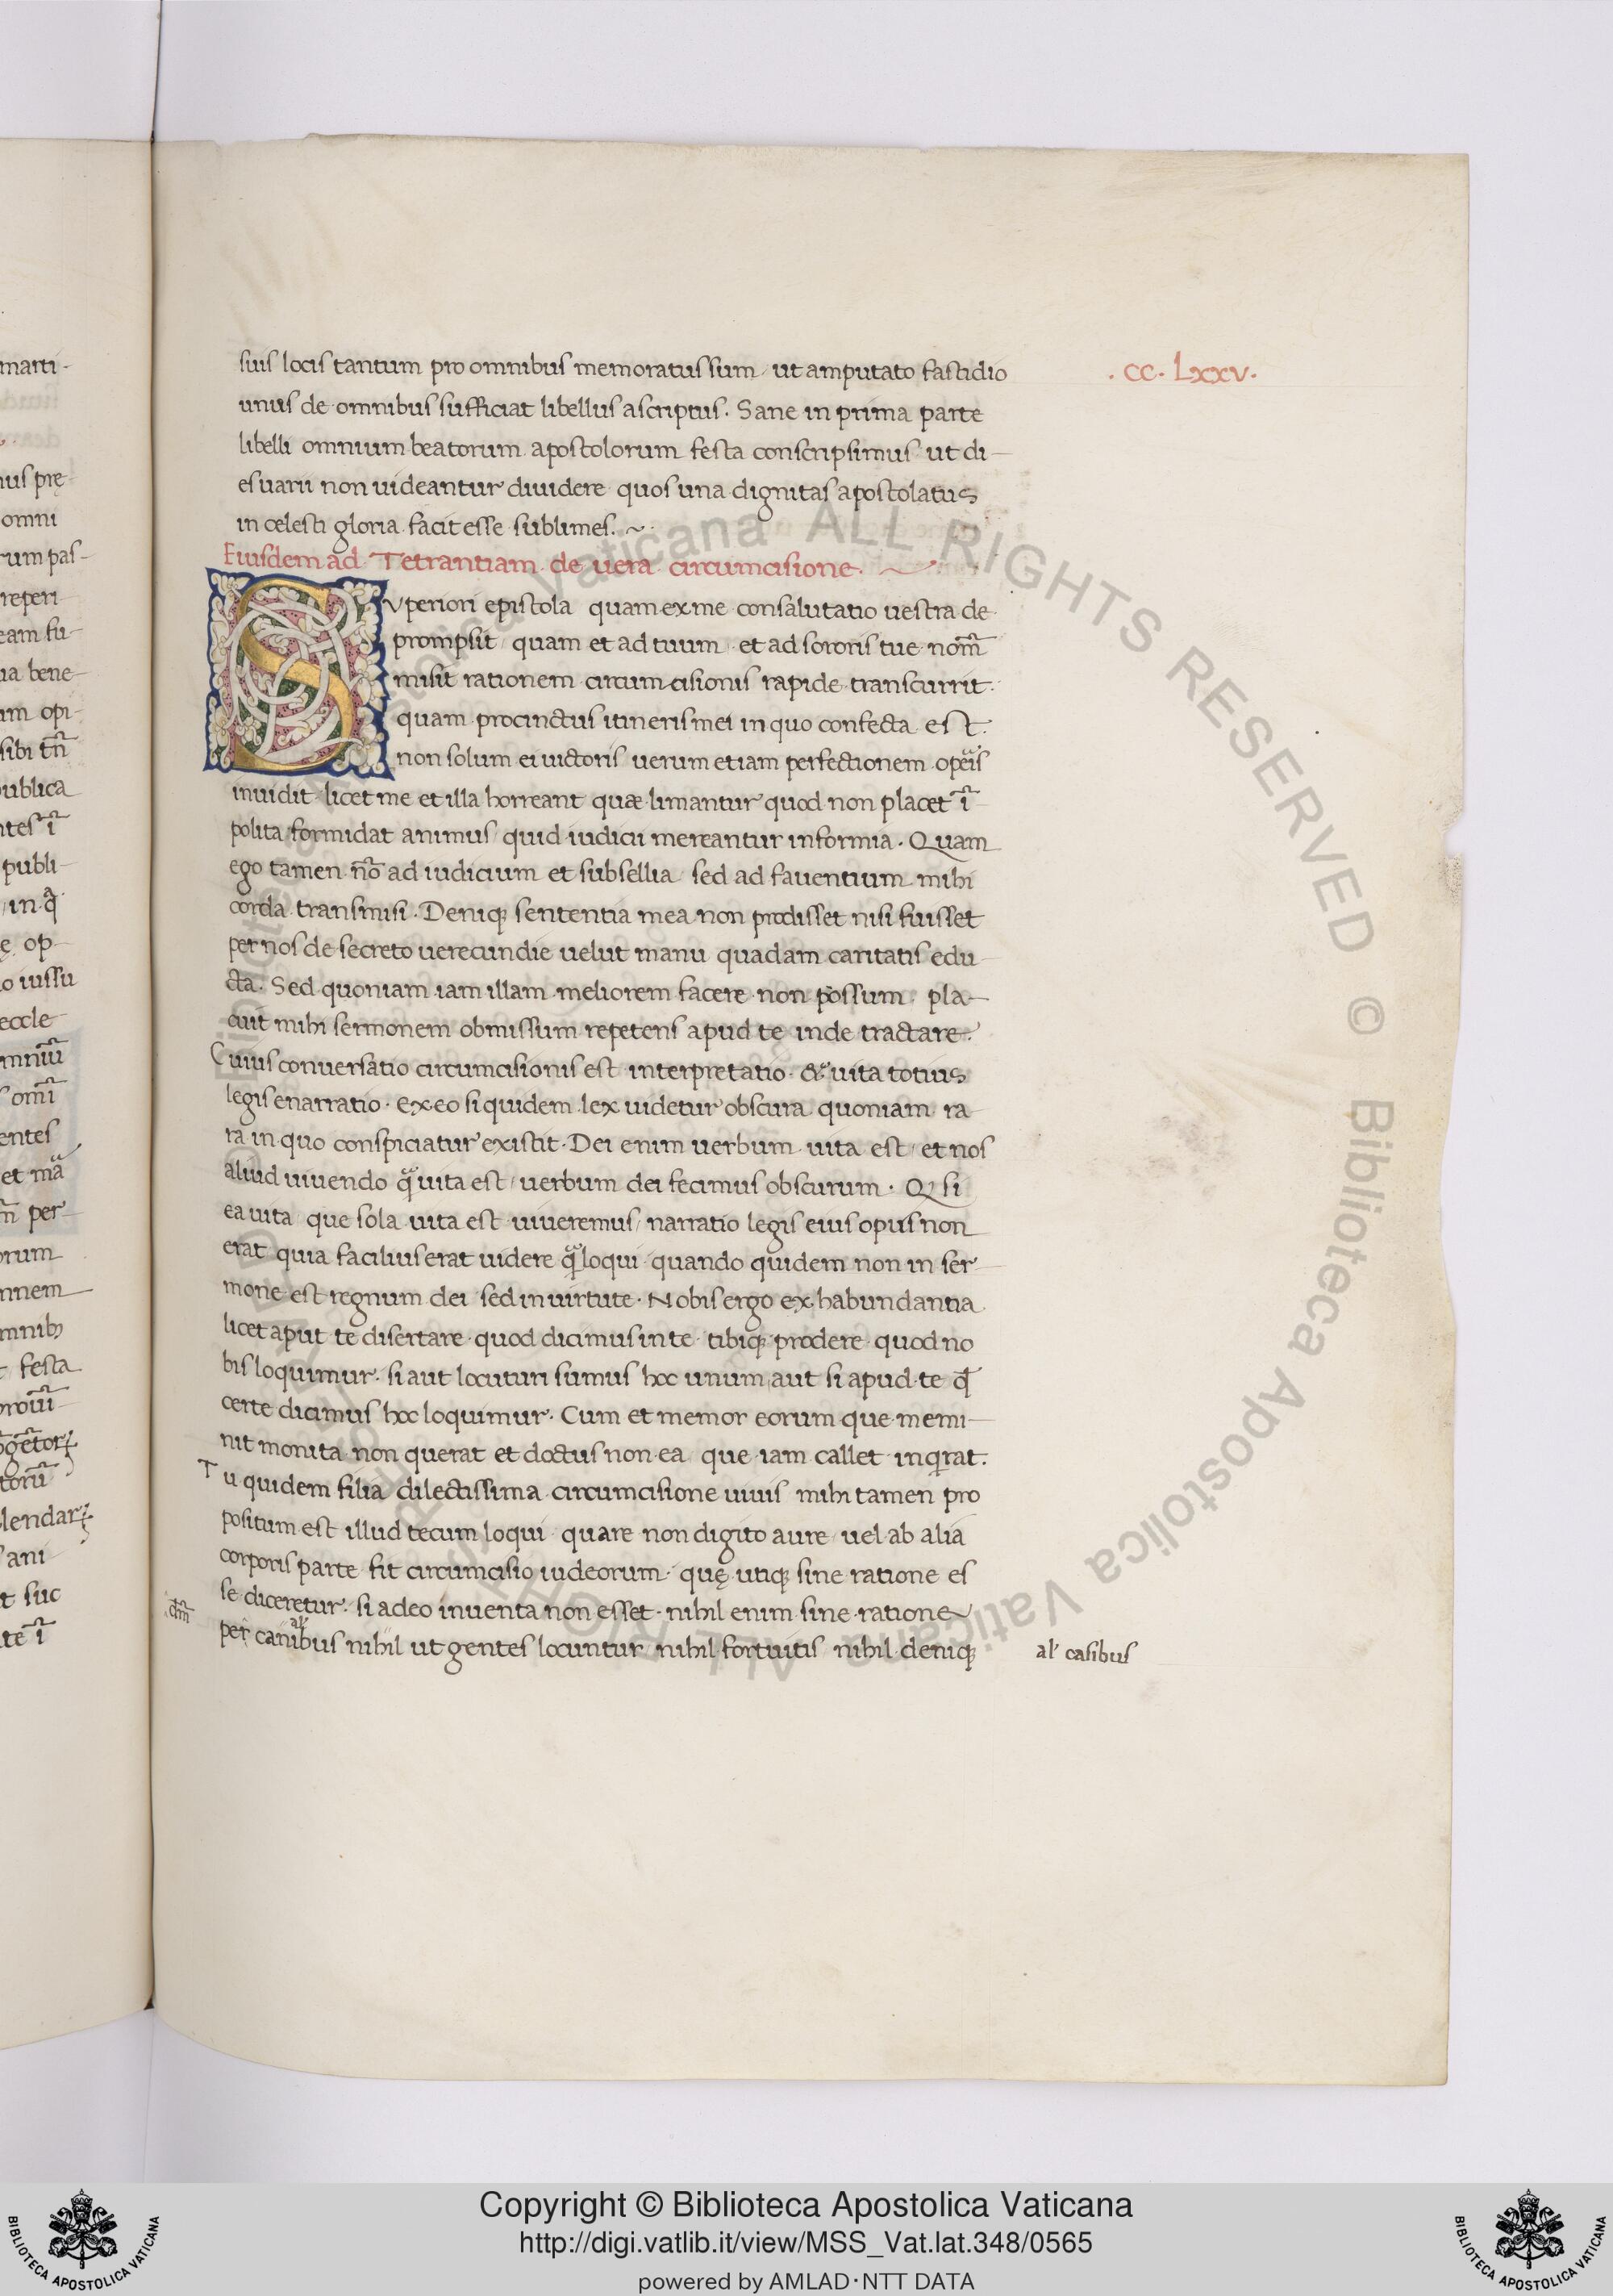 suis locis tantum pro omnibus memoratus sum, ut amputato fastidio
.CC.LXXV.
unus de omnibus sufficiat libellus ascriptus. Sane in prima parte
libelli omnium beatorum apostolorum festa conscripsimus ut di-
es uarii non uideantur diuidere quos una dignitas apostolatus
in celesti gloria facit esse sublimes. ~
Eiusdem ad Tetrantiam de uera circumcisione.
Superiori epistola quam ex me consalutatio uestra de
prompsit, quam et ad tuum et ad sororis tue nom̃
misit rationem circumcisionis rapide transcurrit.
quam procinctus itineris mei in quo confecta est.
non solum ei uictoris uerum etiam perfectionem
inuidit licet me et illa horreant quæ limantur quod non placet ĩ
polita formidat animus quid iudicii mereantur informia. Quam
ego tamen nõ ad iudicium et subsellia sed ad fauentium mihi
corda transmisi. Deniq; sententia mea non prodisset nisi fuisset
per nos de secreto uerecundie uelut manu quadam caritatis edu
cta. Sed quoniam iam illam meliorem facere non possum pla-
cuit mihi sermonem obmissum repetens apud te inde tractare.
Cuius conuersatio circumcisionis est interpretatio. & uita totius
legis enarratio. ex eo siquidem lex uidetur obscura quoniam ra
ra in quo conspiciatur existit. Dei enim uerbum uita est, et nos
aliud uiuendo q̃ uita est, uerbum dei fecimus obscurum. Q si
ea uita que sola uita est uiueremus, narratio legis eius opus non
erat quia facilius erat uidere q̃ loqui quando quidem non in ser-
mone est regnum dei sed in uirtute. Nobis ergo ex habundantia
licet aput te disertare quod dicimus in te tibiq; prodere quod no
bis loquimur. si aut locuturi sumus hoc unum aut si apud te q̄
certe dicimus hoc loquimur. Cum et memor eorum que memi-
nit monita non querat et doctus non ea que iam callet inq̇rat.
Tu quidem filia dilectissima circumcisione uiuis mihi tamen pro
positum est illud tecum loqui quare non digito aure uel ab alia
corporis parte fit circumcisio iudeorum. quę utiq; sine ratione es
se diceretur. si adeo inuenta non esset. nihil enim sine ratione
per canibus nihil ut gentes locuntur nihil fortuitis nihil deniq;
al' casibus
marti-
omni
rum pas-
reperi
eam fu-
ia bene-
im opi-
sibi tñ
publica
publi-
op-
o iussu
eccle
entes
et mã
per-
orum
festa
ani
suc
te ĩ
Biblioteca Apostolica Vaticana ALL RIGHTS RESERVED © Biblioteca Apostolica Vaticana ALL RIGHTS RESERVED ©
Copyright © Biblioteca Apostolica Vaticana
http://digi.vatlib.it/view/MSS_Vat.lat.348/0565
powered by AMLAD·NTT DATA
BIBLIOTECA APOSTOLICA VATICANA
BIBLIOTECA APOSTOLICA VATICANA